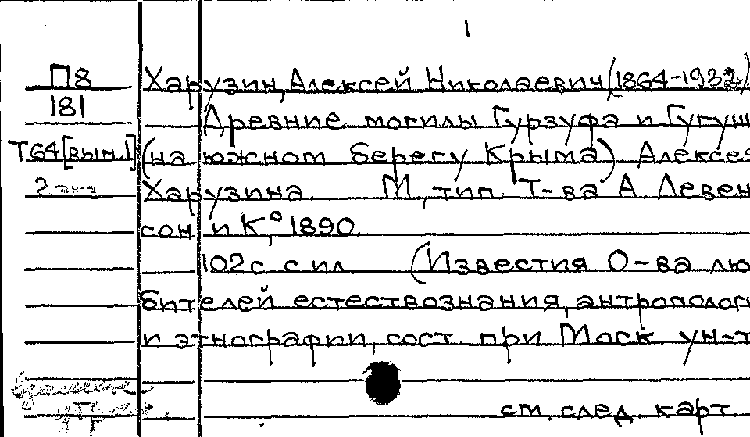 1
П8 Харузин, Алексей Николаевич (1864-1932)
181 Древние могилы Гурзуфа и Гугуш
Т.64[вып.1] (на южном берегу Крыма) Алексея
Харузина. М., тип. Т-ва А. Левен
сон и К°, 1890.
102 с. с ил. (Известия О-ва лю
бителей естествознания, антрополог
и этнографии, сост. при Моск ун-т
см. след. карт.